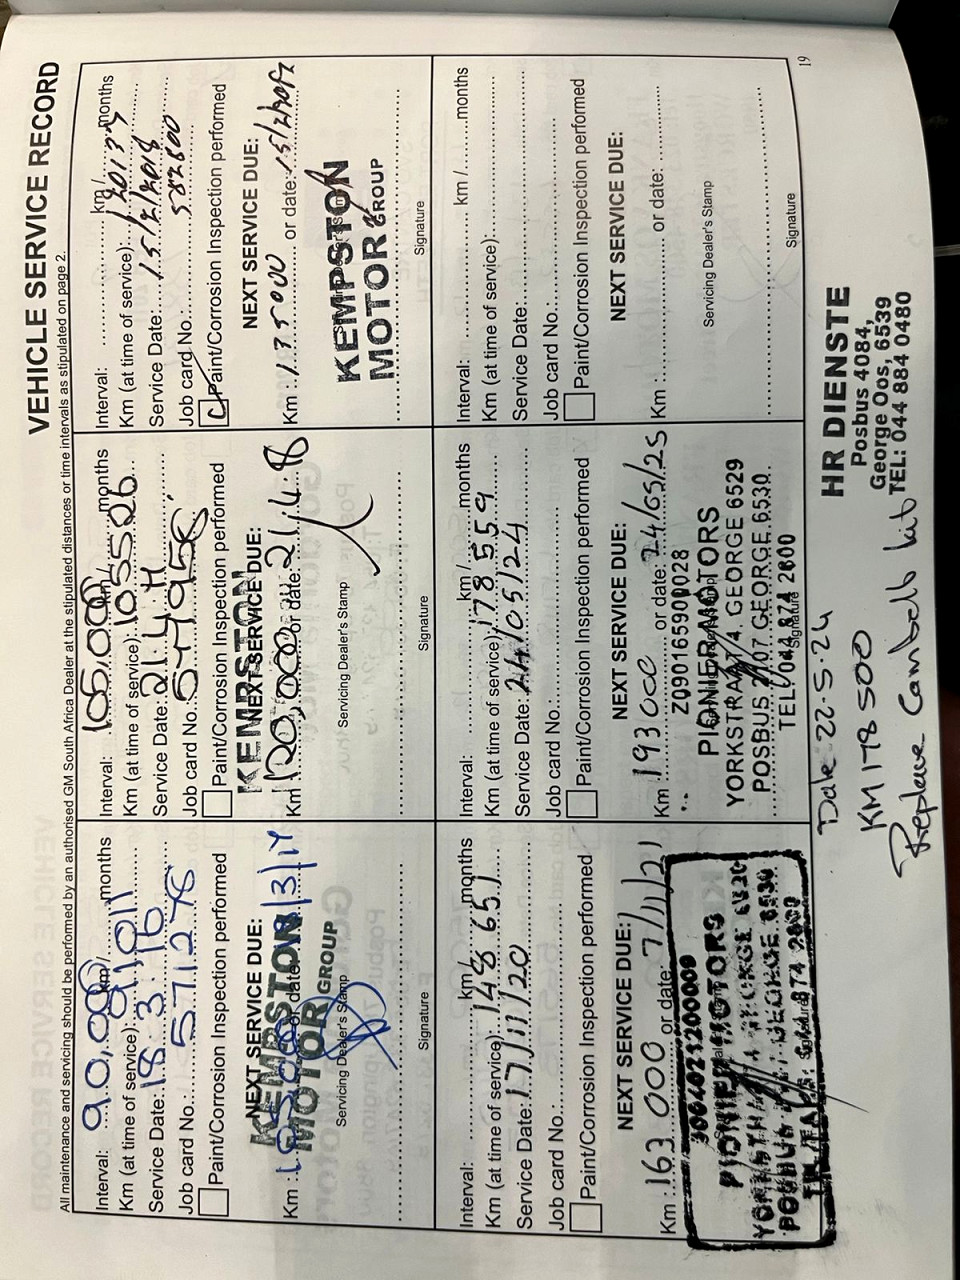 VEHICLE SERVICE RECORD
All maintenance and servicing should be performed by an authorised GM South Africa Dealer at the stipulated distances or time intervals as stipulated on page 2.
Interval: 90,000 km/ months
Km (at time of service): 91,011
Service Date: 18.3.16
Job card No.: 571278
Paint/Corrosion Inspection performed
NEXT SERVICE DUE:
Km : or date: 18/3/17
KEMPSTON
MOTOR GROUP
Servicing Dealer's Stamp
Signature
Interval: 105,000 km/ months
Km (at time of service): 105526
Service Date: 21.4.
Job card No.:
Paint/Corrosion Inspection performed
KEMPSTON
NEXT SERVICE DUE:
Km 120,000 or date: 21.4.
Servicing Dealer's Stamp
Signature
Interval: km/ months
Km (at time of service):
Service Date: 15/2/2018
Job card No.: 582800
Paint/Corrosion Inspection performed
NEXT SERVICE DUE:
Km : 135000 or date:
KEMPSTON
MOTOR GROUP
Signature
Interval: km/ months
Km (at time of service): 148 651
Service Date: 17/11/20
Job card No.
Paint/Corrosion Inspection performed
NEXT SERVICE DUE:
Km : 163 000 or date: 7/11/21
PIONIER MOTORS
Interval: km/ months
Km (at time of service): 178 559
Service Date: 24/05/24
Job card No.
Paint/Corrosion Inspection performed
NEXT SERVICE DUE:
Km : 193000 or date: 24/05/25
Z09016590D028
PIONIER MOTORS
YORKSTRAAT 74, GEORGE 6529
POSBUS GEORGE 6530
TEL: 044 874 2600
Signature
Interval: km / months
Km (at time of service):
Service Date:
Job card No.
Paint/Corrosion Inspection performed
NEXT SERVICE DUE:
Km : or date:
Servicing Dealer's Stamp
Signature
19
Date 22-5-24
KM 178 500
Replace Cambelt kit
HR DIENSTE
Posbus 4084,
George Oos, 6539
TEL: 044 884 0480